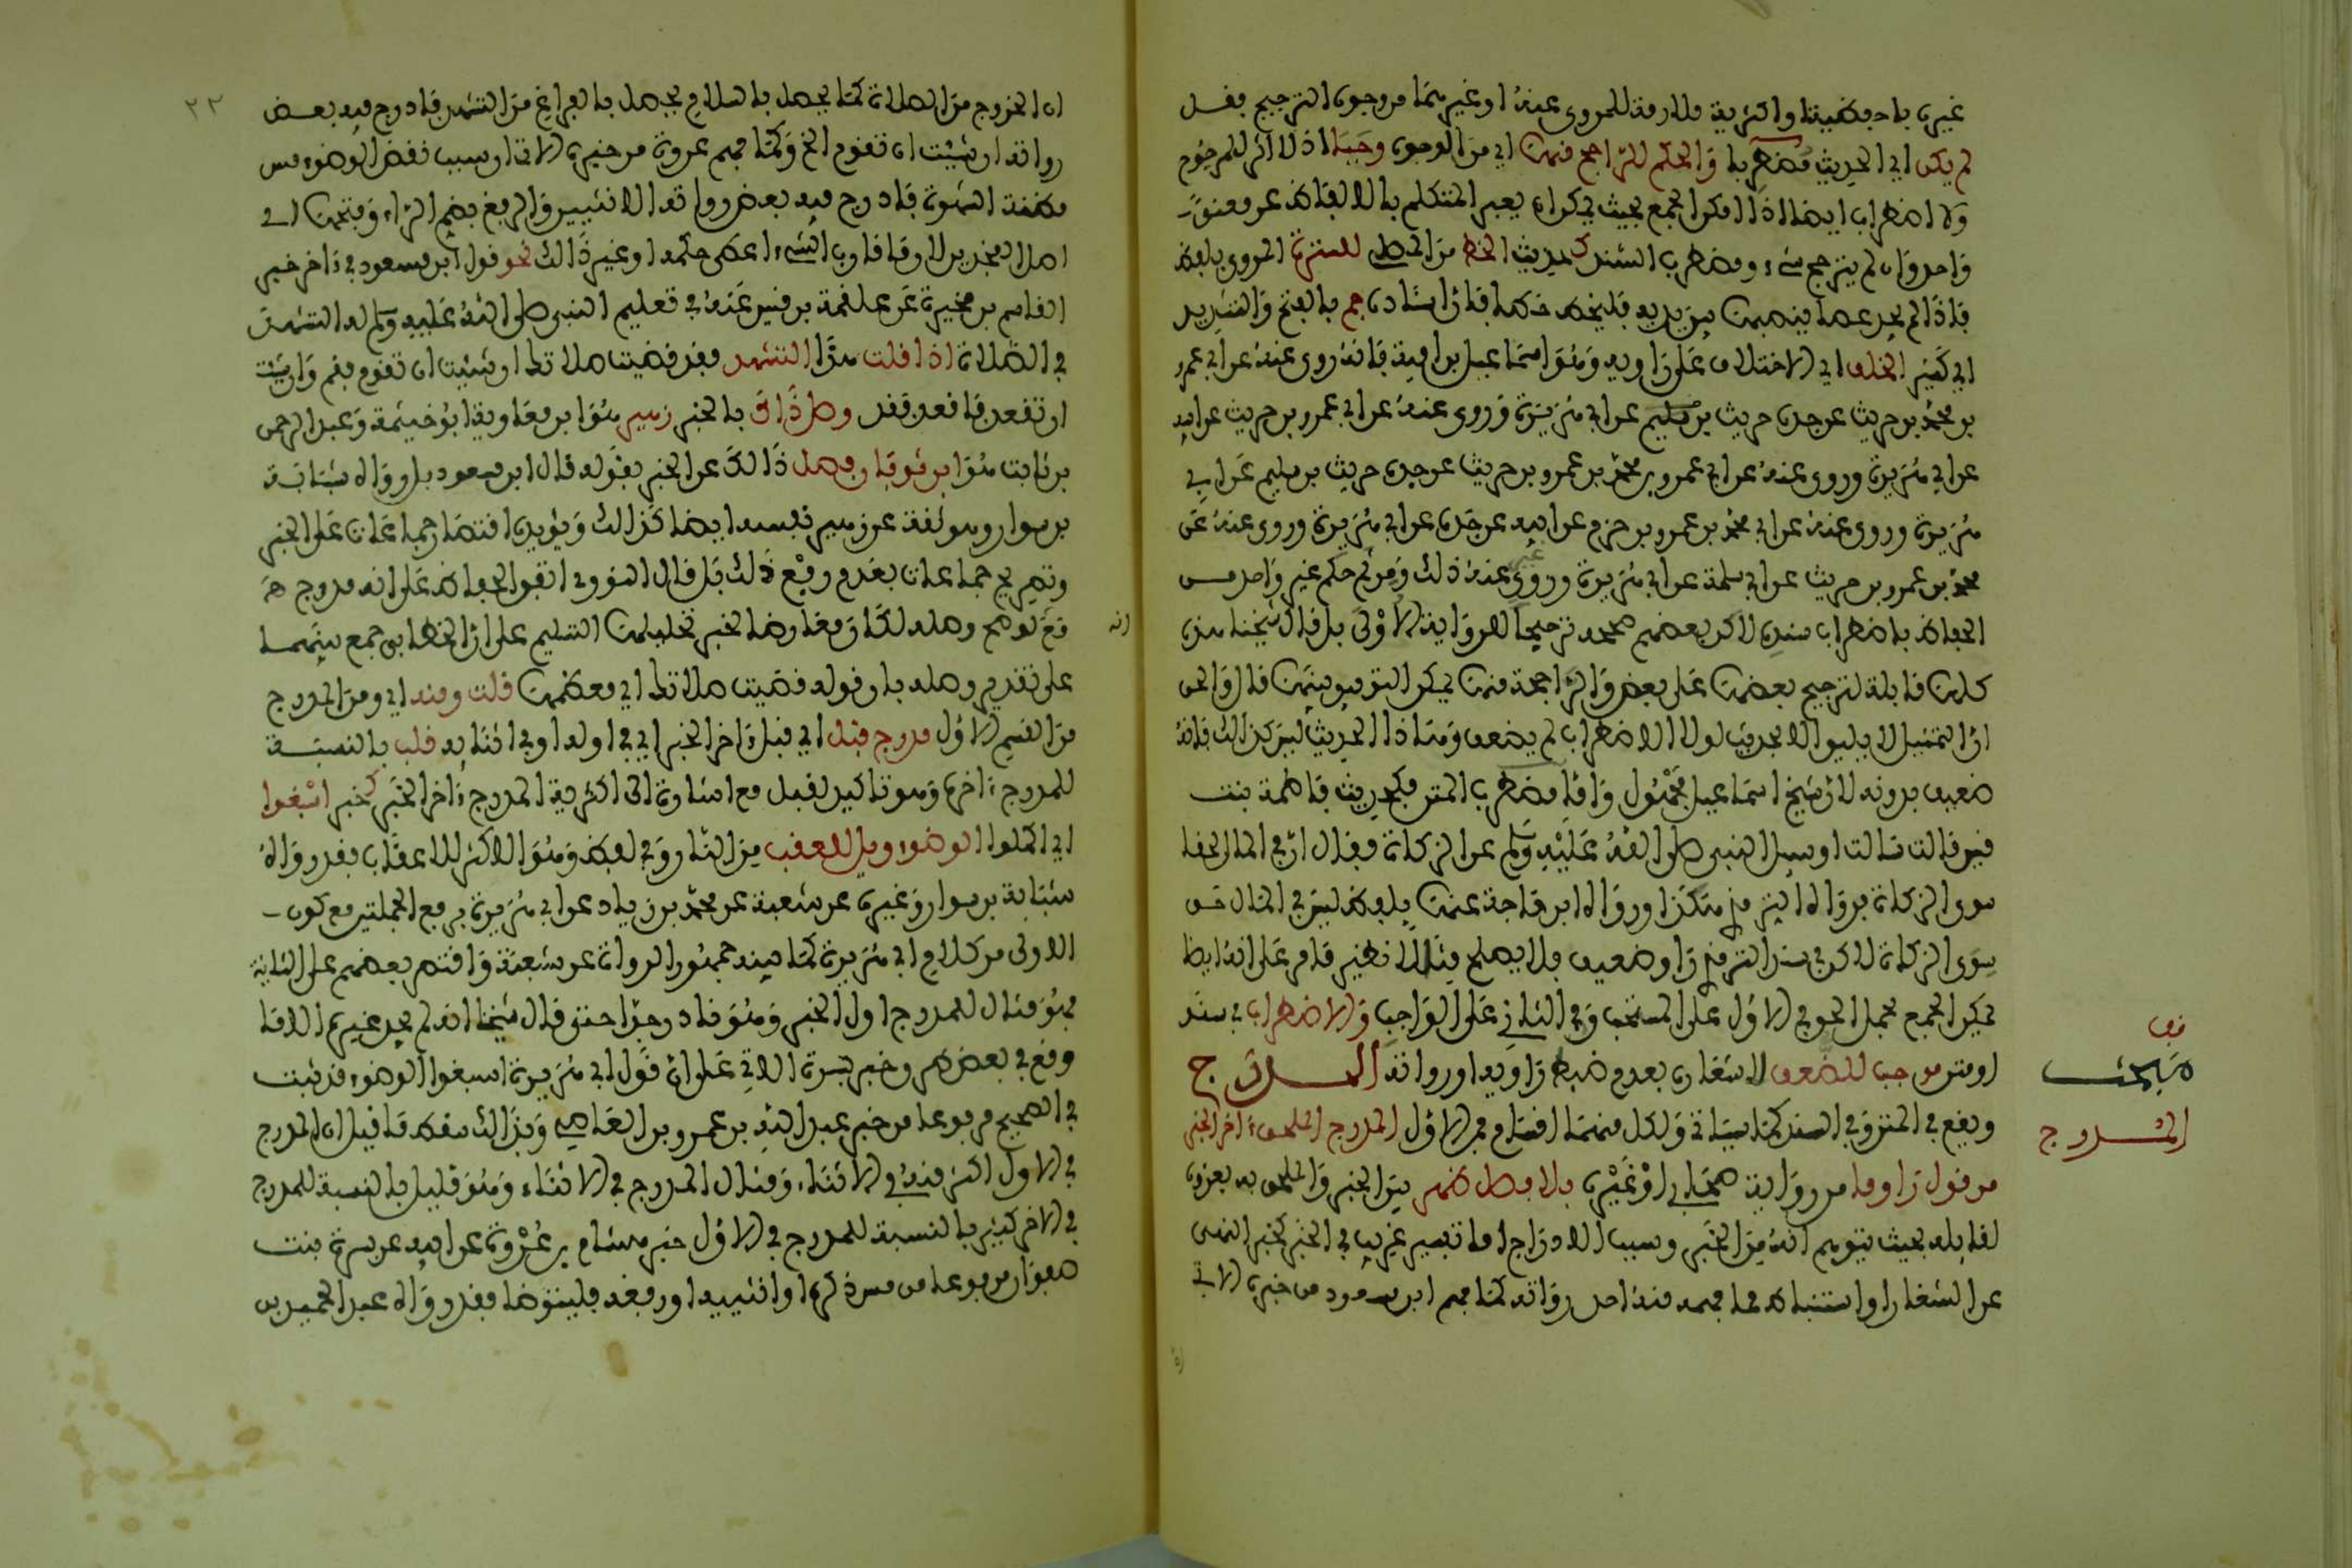 غيره باحفظية او اكثرية ملازمة للمروي عنه او غيرهما من وجوه الترجيح فقل
لم يكن اي الحديث مضطربا والحكم للراجح منهما اي من الوجوه وجبا اذ لا اثر للمرجوح
ولا اضطراب ايضا اذا امكن الجمع بحيث يمكن ان يعبر المتكلم بالالفاظ عن معنى
واحد وان لم يترجح شيء ومضطرب السند كحديث الخط من المصلي للسترة المروي بلفظ
فاذا لم يجد عصا ينصبها بين يديه فليخط خطا فان اسناده جم بالفتح والتشديد
اي كثير الخلف اي الاختلاف على راويه وهو اسماعيل بن امية فانه روي عنه عن ابي عمرو
بن محمد بن حريث عن جده حريث بن سليم عن ابي هريرة وروي عنه عن ابي عمرو بن حريث عن ابيه
عن ابي هريرة وروي عنه عن ابي عمرو بن محمد بن عمرو بن حريث عن جده حريث بن سليم عن ابي
هريرة وروي عنه عن ابي محمد بن عمرو بن حزم عن ابيه عن جده عن ابي هريرة وروي عنه عن
محمد بن عمرو بن حريث عن ابي سلمة عن ابي هريرة وروي عنه غير ذلك ومن ثم حكم غير واحد من
الحفاظ باضطراب سنده لاكن بعضهم صححه ترجيحا للرواية الاولى بل قال شيخنا هذه
كلها قابلة لترجيح بعضها على بعض والراجحة منها يمكن التوفيق بينها قال والحق
ان التمثيل لا يليق الا بحديث لولا الاضطراب لم يضعف وهاذا الحديث ليس كذالك فانه
ضعيف بدونه لان شيخ اسماعيل مجهول واما مضطرب المتن فكحديث فاطمة بنت
قيس قالت سالت او سئل النبي صلى الله عليه وسلم عن الزكاة فقال ان في المال لحقا
سوى الزكاة فرواه الترمذي هكذا ورواه ابن ماجة عنها بلفظ ليس في المال حق
سوى الزكاة لاكن في سند الترمذي راو ضعيف فلا يصلح مثالا نظير ما مر على انه ايضا
يمكن الجمع بحمل الحق في الاول على المستحب وفي الثاني على الواجب والاضطراب في سند
او متن موجب للضعف لاشعاره بعدم ضبط راويه او رواته المدرج
ويقع في المتن وفي السند كما سياتي ولكل منهما اقسام فمن الاول المدرج الملحق ءاخر الخبر
من قول راو ما من رواية صحابي او غيره بلا فصل ظهر بين الخبر والملحق به بعزوه
لقائله بحيث يتوهم انه من الخبر وسبب الادراج اما تفسير غريب في الخبر كخبر النهي
عن الشغار او استنباط مما فهمه منه احد رواته كما فهم ابن مسعود من خبره الاتي
قف
مبحث
المدرج
٢٢
ان الخروج من الصلاة كما يحصل بالسلام يحصل بالفراغ من التشهد فادرج فيه بعض
رواته ان شئت ان تقوم الخ وكما فهم عروة من خبره الاتي ان سبب نقض الوضوء مس
مظنة الشهوة فادرج فيه بعض رواته الانثيين والرفغ بضم الراء وفتحها اي
اصل الفخذين لان ما قارب الشيء اعطي حكمه او غير ذالك نحو قول ابن مسعود في ءاخر خبر
القاسم بن مخيمرة عن علقمة بن قيس عنه في تعليم النبي صلى الله عليه وسلم له التشهد
في الصلاة اذا قلت هذا التشهد فقد قضيت صلاتك ان شئت ان تقوم فقم وان شئت
ان تقعد فاقعد فقد وصل ذاك بالخبر زهير هو ابن معاوية ابو خيثمة وعبد الرحمن
بن ثابت هو ابن ثوبان وفصل ذالك عن الخبر بقوله قال ابن مسعود بل رواه شبابة
بن سوار وهو ثقة عن زهير نفسه ايضا كذالك ويؤيده اقتصار جماعات على الخبر
وتصريح جماعات بعدم رفع ذلك بل قال النووي اتفق الحفاظ على انه مدرج هـ
مع لوضح وصله لكان معارضا لخبر تحليلها التسليم على ان الخطابي جمع بينهما
على تقدير وصله بان قوله قضيت صلاتك اي معظمها قلت ومنه اي ومن المدرج
من القسم الاول مدرج قبل اي قبل ءاخر الخبر اي في اوله او في اثنائه قلب بالنسبة
للمدرج ءاخره وهو تاكيد لقبل مع اشارة الى اكثرية المدرج ءاخر الخبر كخبر اسبغوا
اي اكملوا الوضوء ويل للعقب من النار وفي لفظ وهو الاكثر للاعقاب فقد رواه
شبابة بن سوار وغيره عن شعبة عن محمد بن زياد عن ابي هريرة برفع الجملتين مع كون
الاولى من كلام ابي هريرة كما بينه جمهور الرواة عن شعبة واقتصر بعضهم على الثانية
فهو مثال للمدرج اول الخبر وهو نادر جدا حتى قال شيخنا انه لم يجد غيره الا ما
وقع في بعض طرق خبر بسرة الاتي على ان قول ابي هريرة اسبغوا الوضوء قد ثبت
في الصحيح مرفوعا من خبر عبد الله بن عمرو بن العاصي وبذالك سقط ما قيل ان المدرج
في الاول اكثر منه في الاثناء ومثال المدرج في الاثناء وهو قليل بالنسبة للمدرج
في الاخر كثير بالنسبة للمدرج في الاول خبر هشام بن عروة عن ابيه عن بسرة بنت
صفوان مرفوعا من مس ذكره او انثييه او رفغه فليتوضا فقد رواه عبد الحميد بن